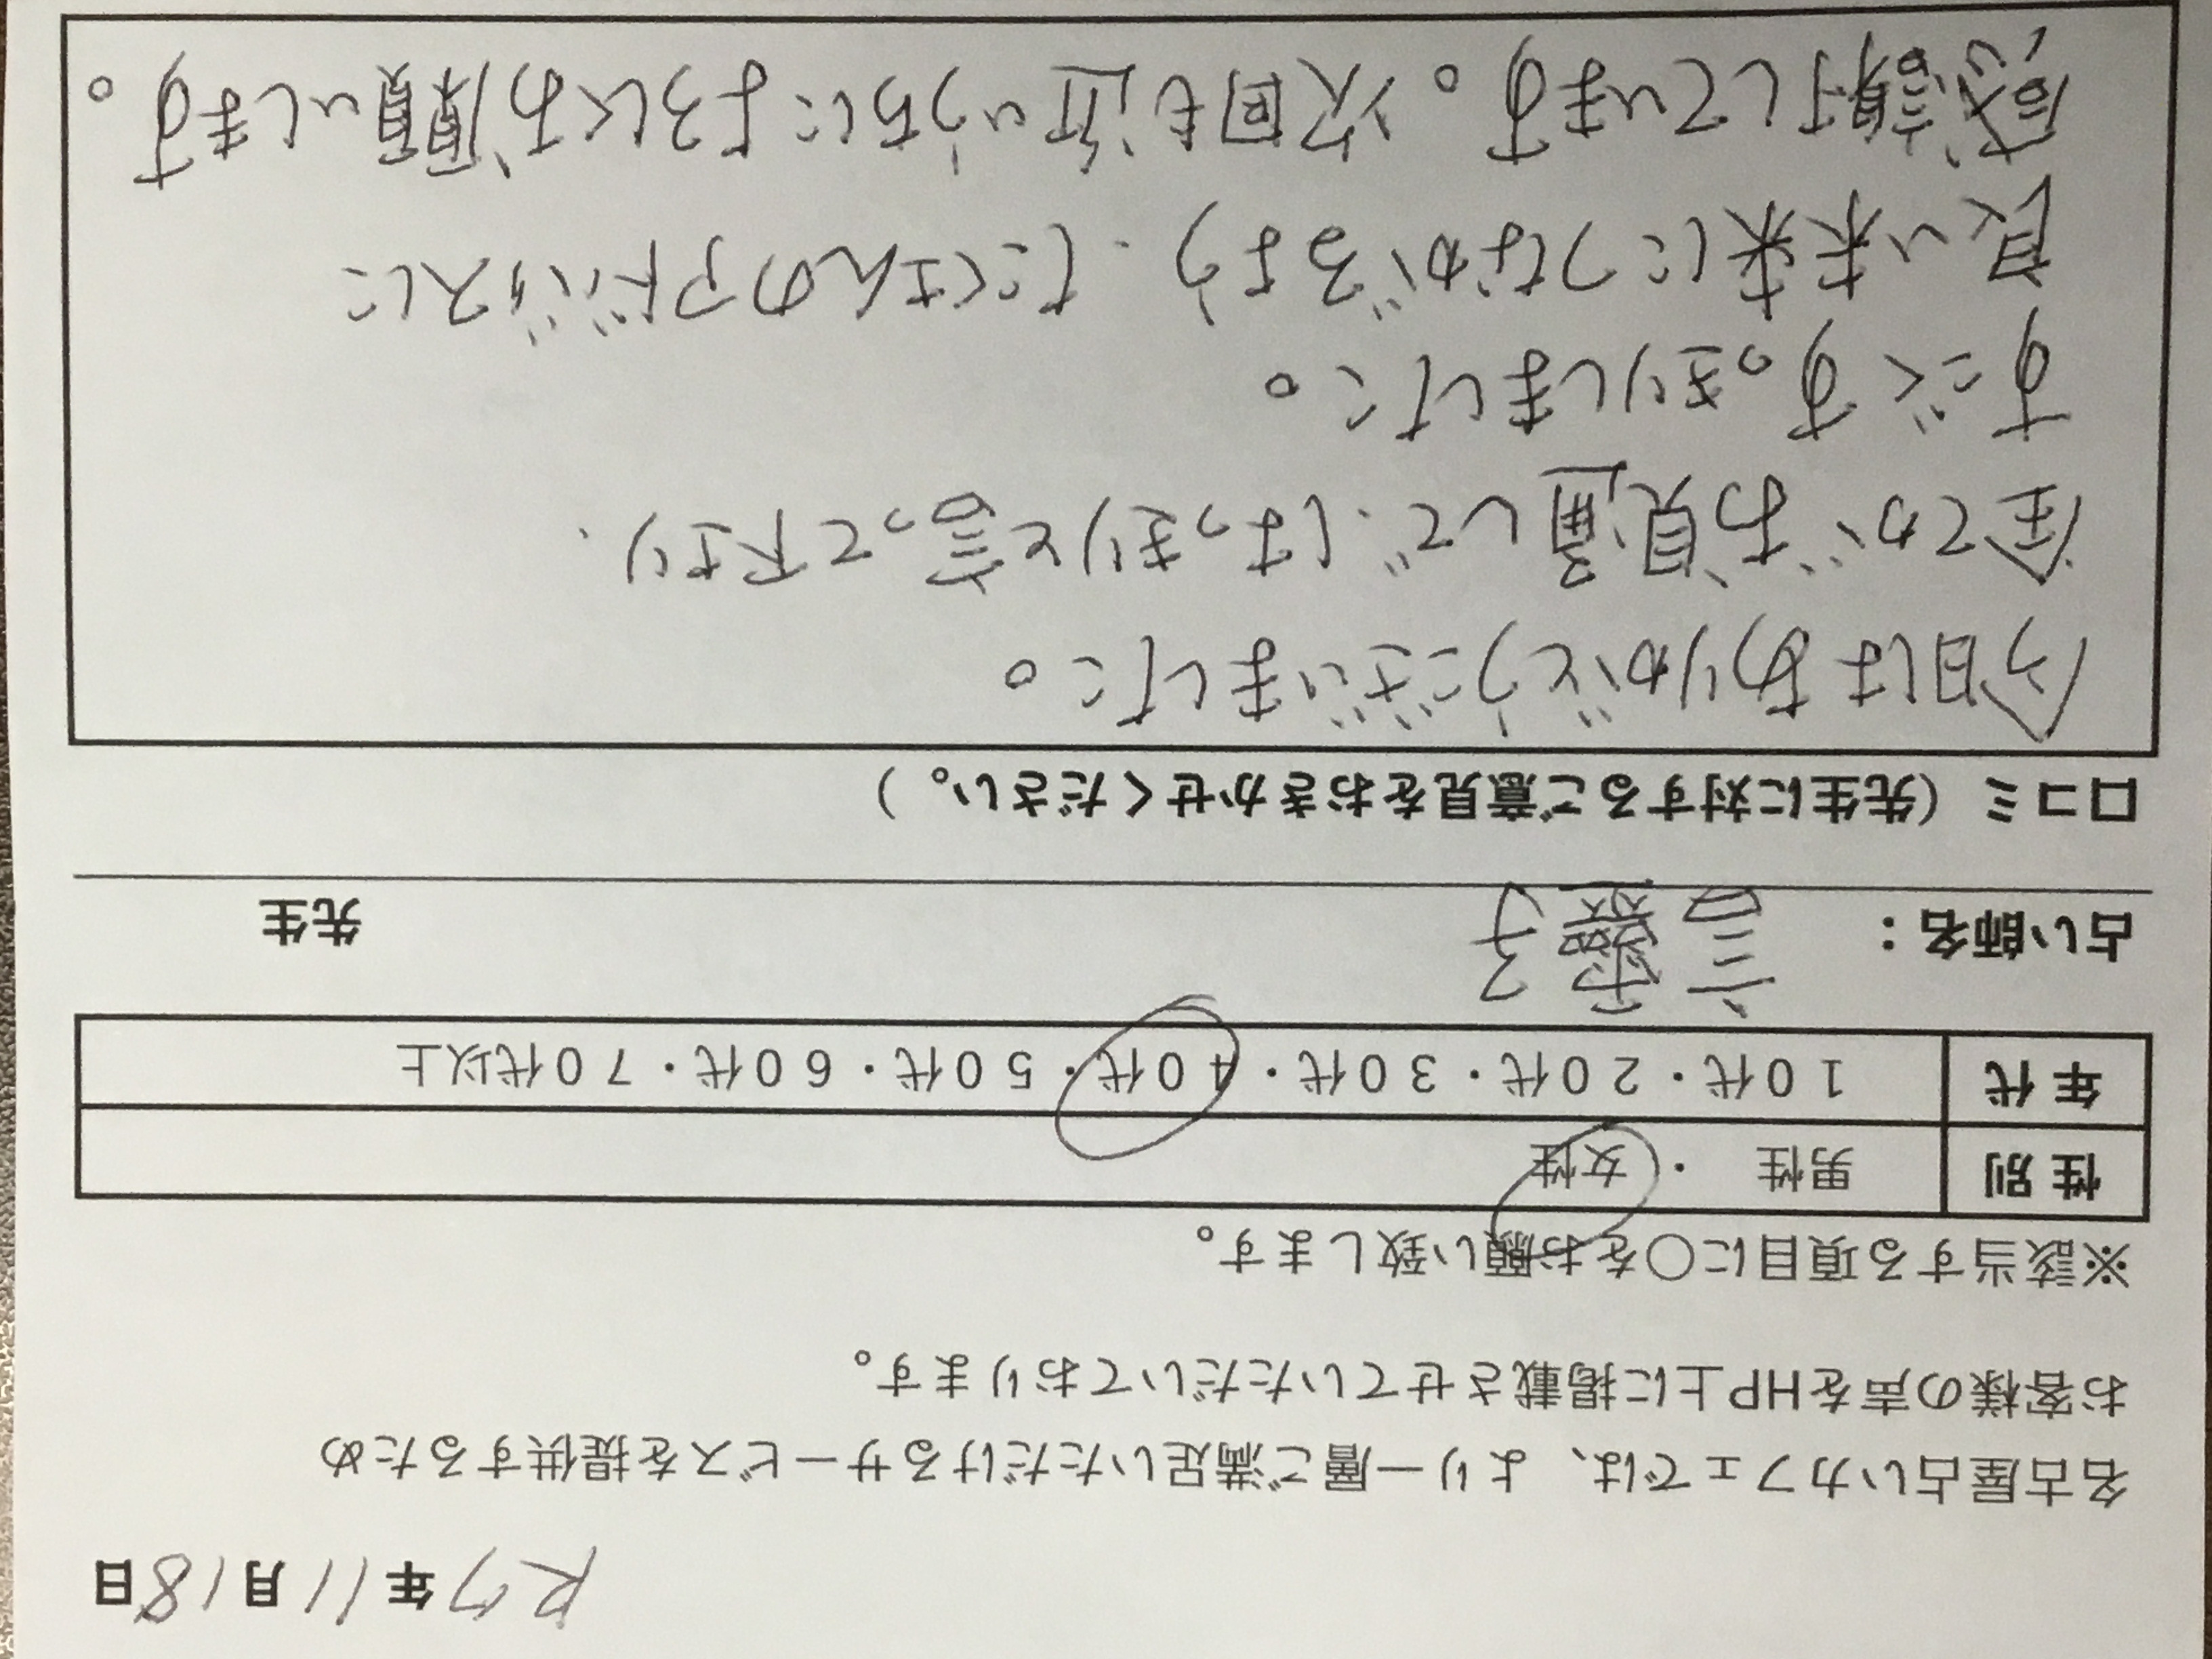 R7年11月18日
名古屋占いカフェでは、より一層ご満足いただけるサービスを提供するため
お客様の声をHP上に掲載させていただいております。
※該当する項目に〇をお願い致します。
性別 男性 ・ 女性
年代 10代・20代・30代・40代・50代・60代・70代以上
占い師名： 言靈子 先生
口コミ（先生に対するご意見をおきかせください。）
今日はありがとうございました。
全てがお見通しで、はっきりと言って下さり、
すごくすっきりしました。
良い未来につながるよう、たくさんのアドバイスに
感謝しています。次回も近いうちによろしくお願いします。